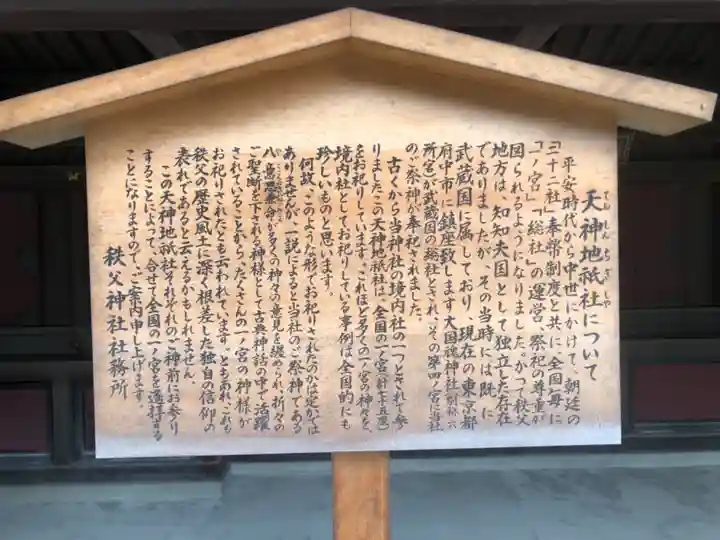 天神地祇社について
てんしんちぎしゃ
平安時代から中世にかけて、朝廷の
「二十二社」奉幣制度と共に、全国毎に
「一ノ宮」「総社」の運営、祭祀の尊重が
図られるようになりました。かつて秩父
地方は、知知夫国として独立した存在
でありましたが、その当時には既に
武蔵国に属しており、現在の東京都
府中市に鎮座致します大国魂神社(別称六
所宮)が武蔵国の総社とされ、その第四ノ宮に当社
のご祭神が奉祀されました。
古くから当神社の境内社の一つとされて参
りましたこの天神地祇社は、全国の一ノ宮(計七十五座)
をお祀りしています。これほど多くの一ノ宮の神々を、
境内社としてお祀りしている事例は全国的にも
珍しいものと思います。
何故、このような形でお祀りされたのかは定かでは
ありませんが、一説によると当社のご祭神である
八意思兼命が多くの神々の意見を纏められ、折々の
ご聖断を下される神様として古典神話の中で活躍
されていることから、たくさんの一ノ宮の神様が
お祀りされたとも云われています。ともあれ、これも
秩父の歴史風土に深く根差した独自の信仰の
表れであると云えるかもしれません。
この天神地祇社それぞれのご神前にお参り
することによって、合せて全国の一ノ宮を遙拝する
ことになりますので、ご案内申し上げます。
秩父神社社務所